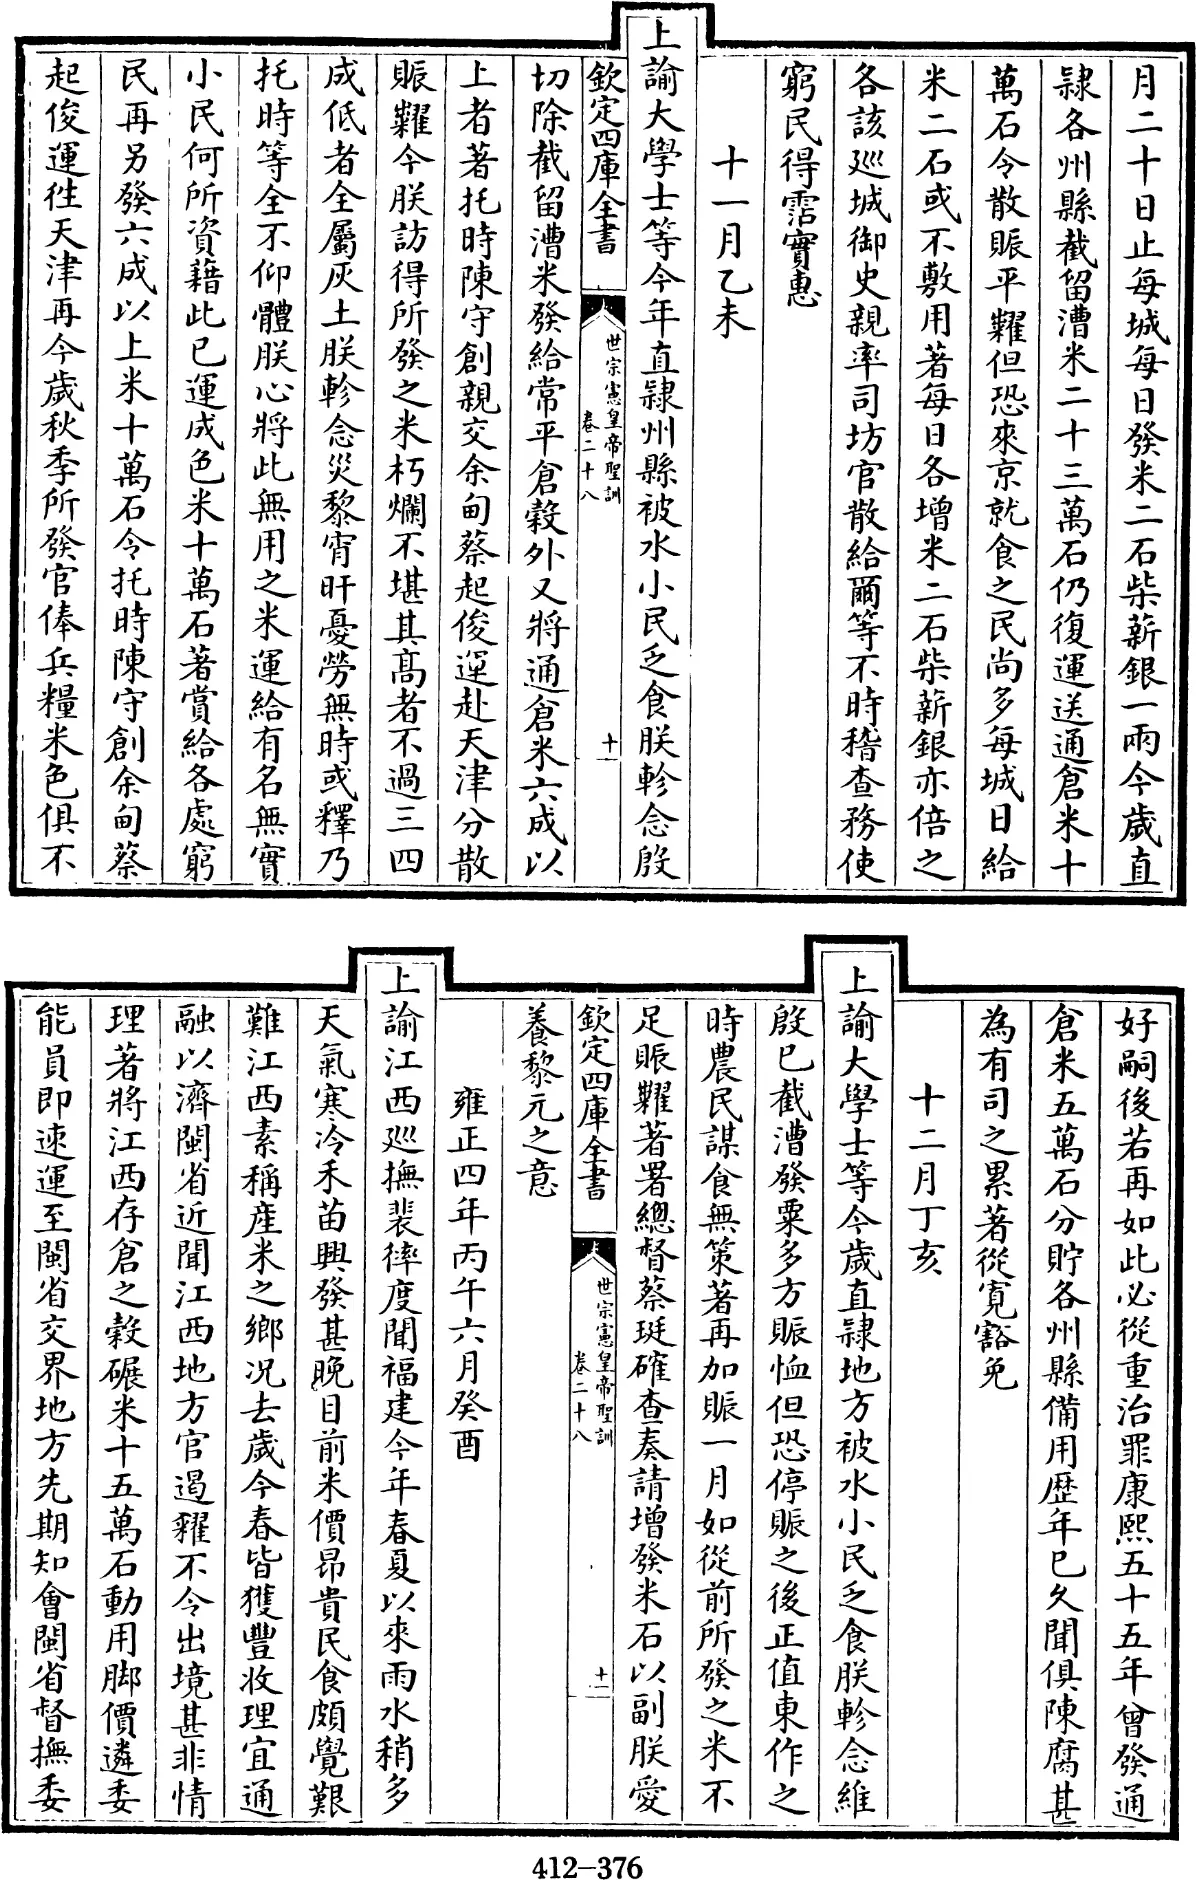 月二十日止每城每日發米二石柴薪銀一兩今歲直
隸各州縣截留漕米二十三萬石仍復運送通倉米十
萬石令散賑平糶但恐來京就食之民尚多每城日給
米二石或不敷用著每日各增米二石柴薪銀亦倍之
各該巡城御史親率司坊官散給爾等不時稽查務使
窮民得霑實惠
十一月乙未
上諭大學士等今年直隸州縣被水小民乏食朕軫念殷
欽定四庫全書
世宗憲皇帝聖訓
卷二十八
十一
切除截留漕米發給常平倉穀外又將通倉米六成以
上者著托時陳守創親交余甸蔡起俊運赴天津分散
賑糶今朕訪得所發之米朽爛不堪其高者不過三四
成低者全屬灰土朕軫念災黎宵旰憂勞無時或釋乃
托時等全不仰體朕心將此無用之米運給有名無實
小民何所資藉此已運成色米十萬石著賞給各處窮
民再另發六成以上米十萬石令托時陳守創余甸蔡
起俊運往天津再今歲秋季所發官俸兵糧米色俱不
好嗣後若再如此必從重治罪康熙五十五年曾發通
倉米五萬石分貯各州縣備用歷年已久聞俱陳腐甚
為有司之累著從寬豁免
十二月丁亥
上諭大學士等今歲直隸地方被水小民乏食朕軫念維
殷已截漕發粟多方賑恤但恐停賑之後正值東作之
時農民謀食無策著再加賑一月如從前所發之米不
足賑糶著署總督蔡珽確查奏請增發米石以副朕愛
欽定四庫全書
世宗憲皇帝聖訓
卷二十八
十二
養黎元之意
雍正四年丙午六月癸酉
上諭江西巡撫裴𢕑度聞福建今年春夏以來雨水稍多
天氣寒冷禾苗興發甚晚目前米價昂貴民食頗覺艱
難江西素稱產米之鄉况去歲今春皆獲豐收理宜通
融以濟閩省近聞江西地方官遏糶不令出境甚非情
理著將江西存倉之穀碾米十五萬石動用脚價遴委
能員即速運至閩省交界地方先期知會閩省督撫委
412-376